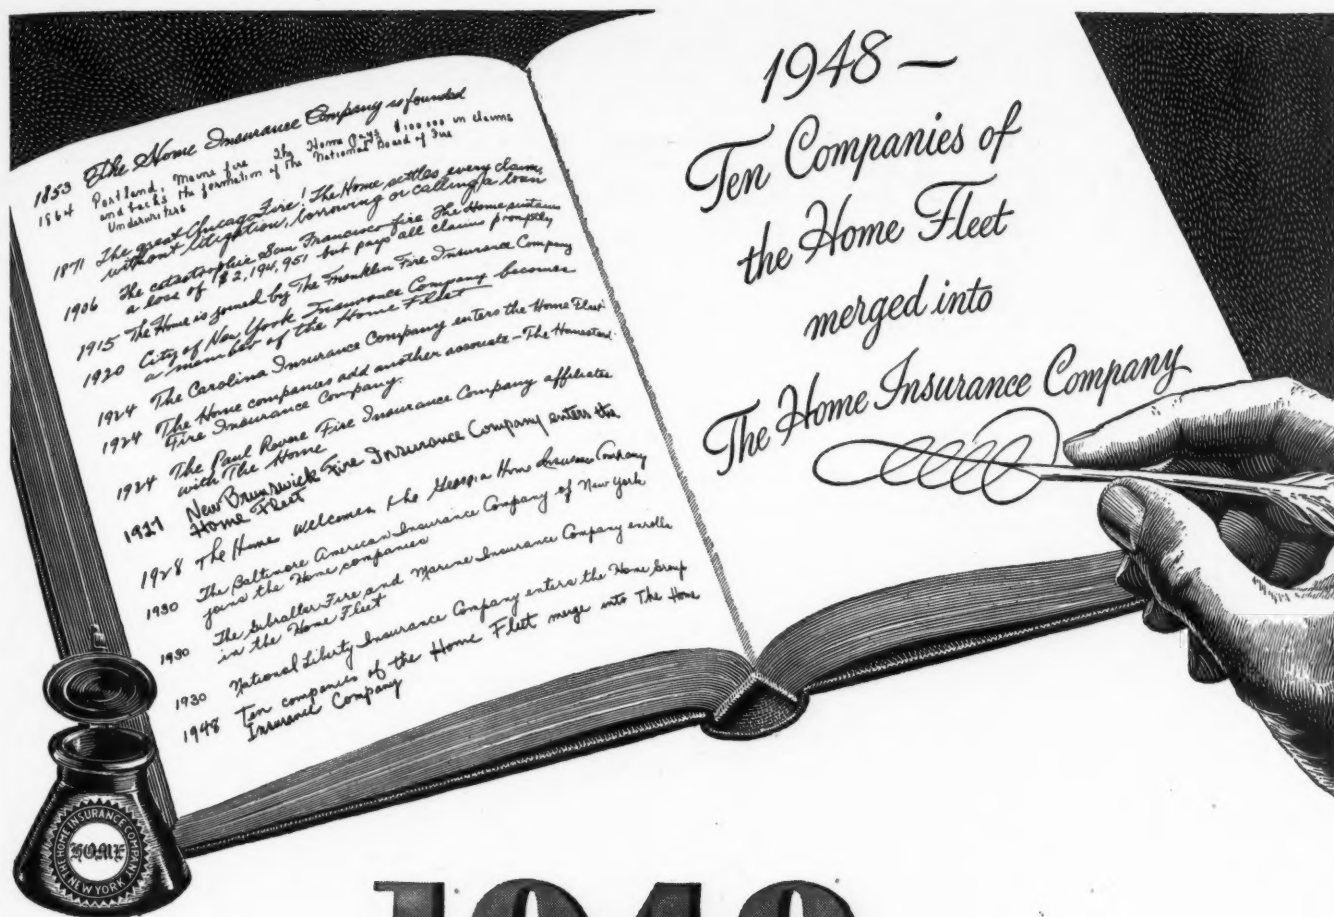 1853 The Home Insurance Company is founded
1864 Portland, Maine fire The Home pays $100 000 in claims
and backs the formation of The National Board of Fire
Underwriters
1871 The great Chicago Fire! The Home settles every claim,
without litigation, borrowing or calling a loan
1906 The catastrophic San Francisco fire The Home sustains
a loss of $2,194,951 but pays all claims promptly
1915 The Home is joined by The Franklin Fire Insurance Company
1920 City of New York Insurance Company becomes
a member of the Home Fleet
1924 The Carolina Insurance Company enters the Home Fleet
1924 The Home companies add another associate - The Homestead
Fire Insurance Company.
1924 The Paul Revere Fire Insurance Company affiliates
with The Home
1927 New Brunswick Fire Insurance Company enters the
Home Fleet
1928 The Home welcomes the Georgia Home Insurance Company
1930 The Baltimore American Insurance Company of New York
joins the Home companies
1930 The Gibralter Fire and Marine Insurance Company enrolls
in the Home Fleet
1930 National Liberty Insurance Company enters the Home Group
1948 Ten companies of the Home Fleet merge into The Home
Insurance Company
1948 —
Ten Companies of
the Home Fleet
merged into
The Home Insurance Company
THE HOME INSURANCE COMPANY
HOME
NEW YORK
1948